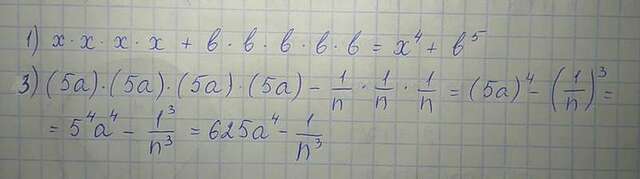 1) x · x · x · x + в · в · в · в · в = x⁴ + в⁵
3) (5a) · (5a) · (5a) · (5a) − 1/n · 1/n · 1/n = (5a)⁴ − (1/n)³ =
= 5⁴a⁴ − 1³/n³ = 625a⁴ − 1/n³